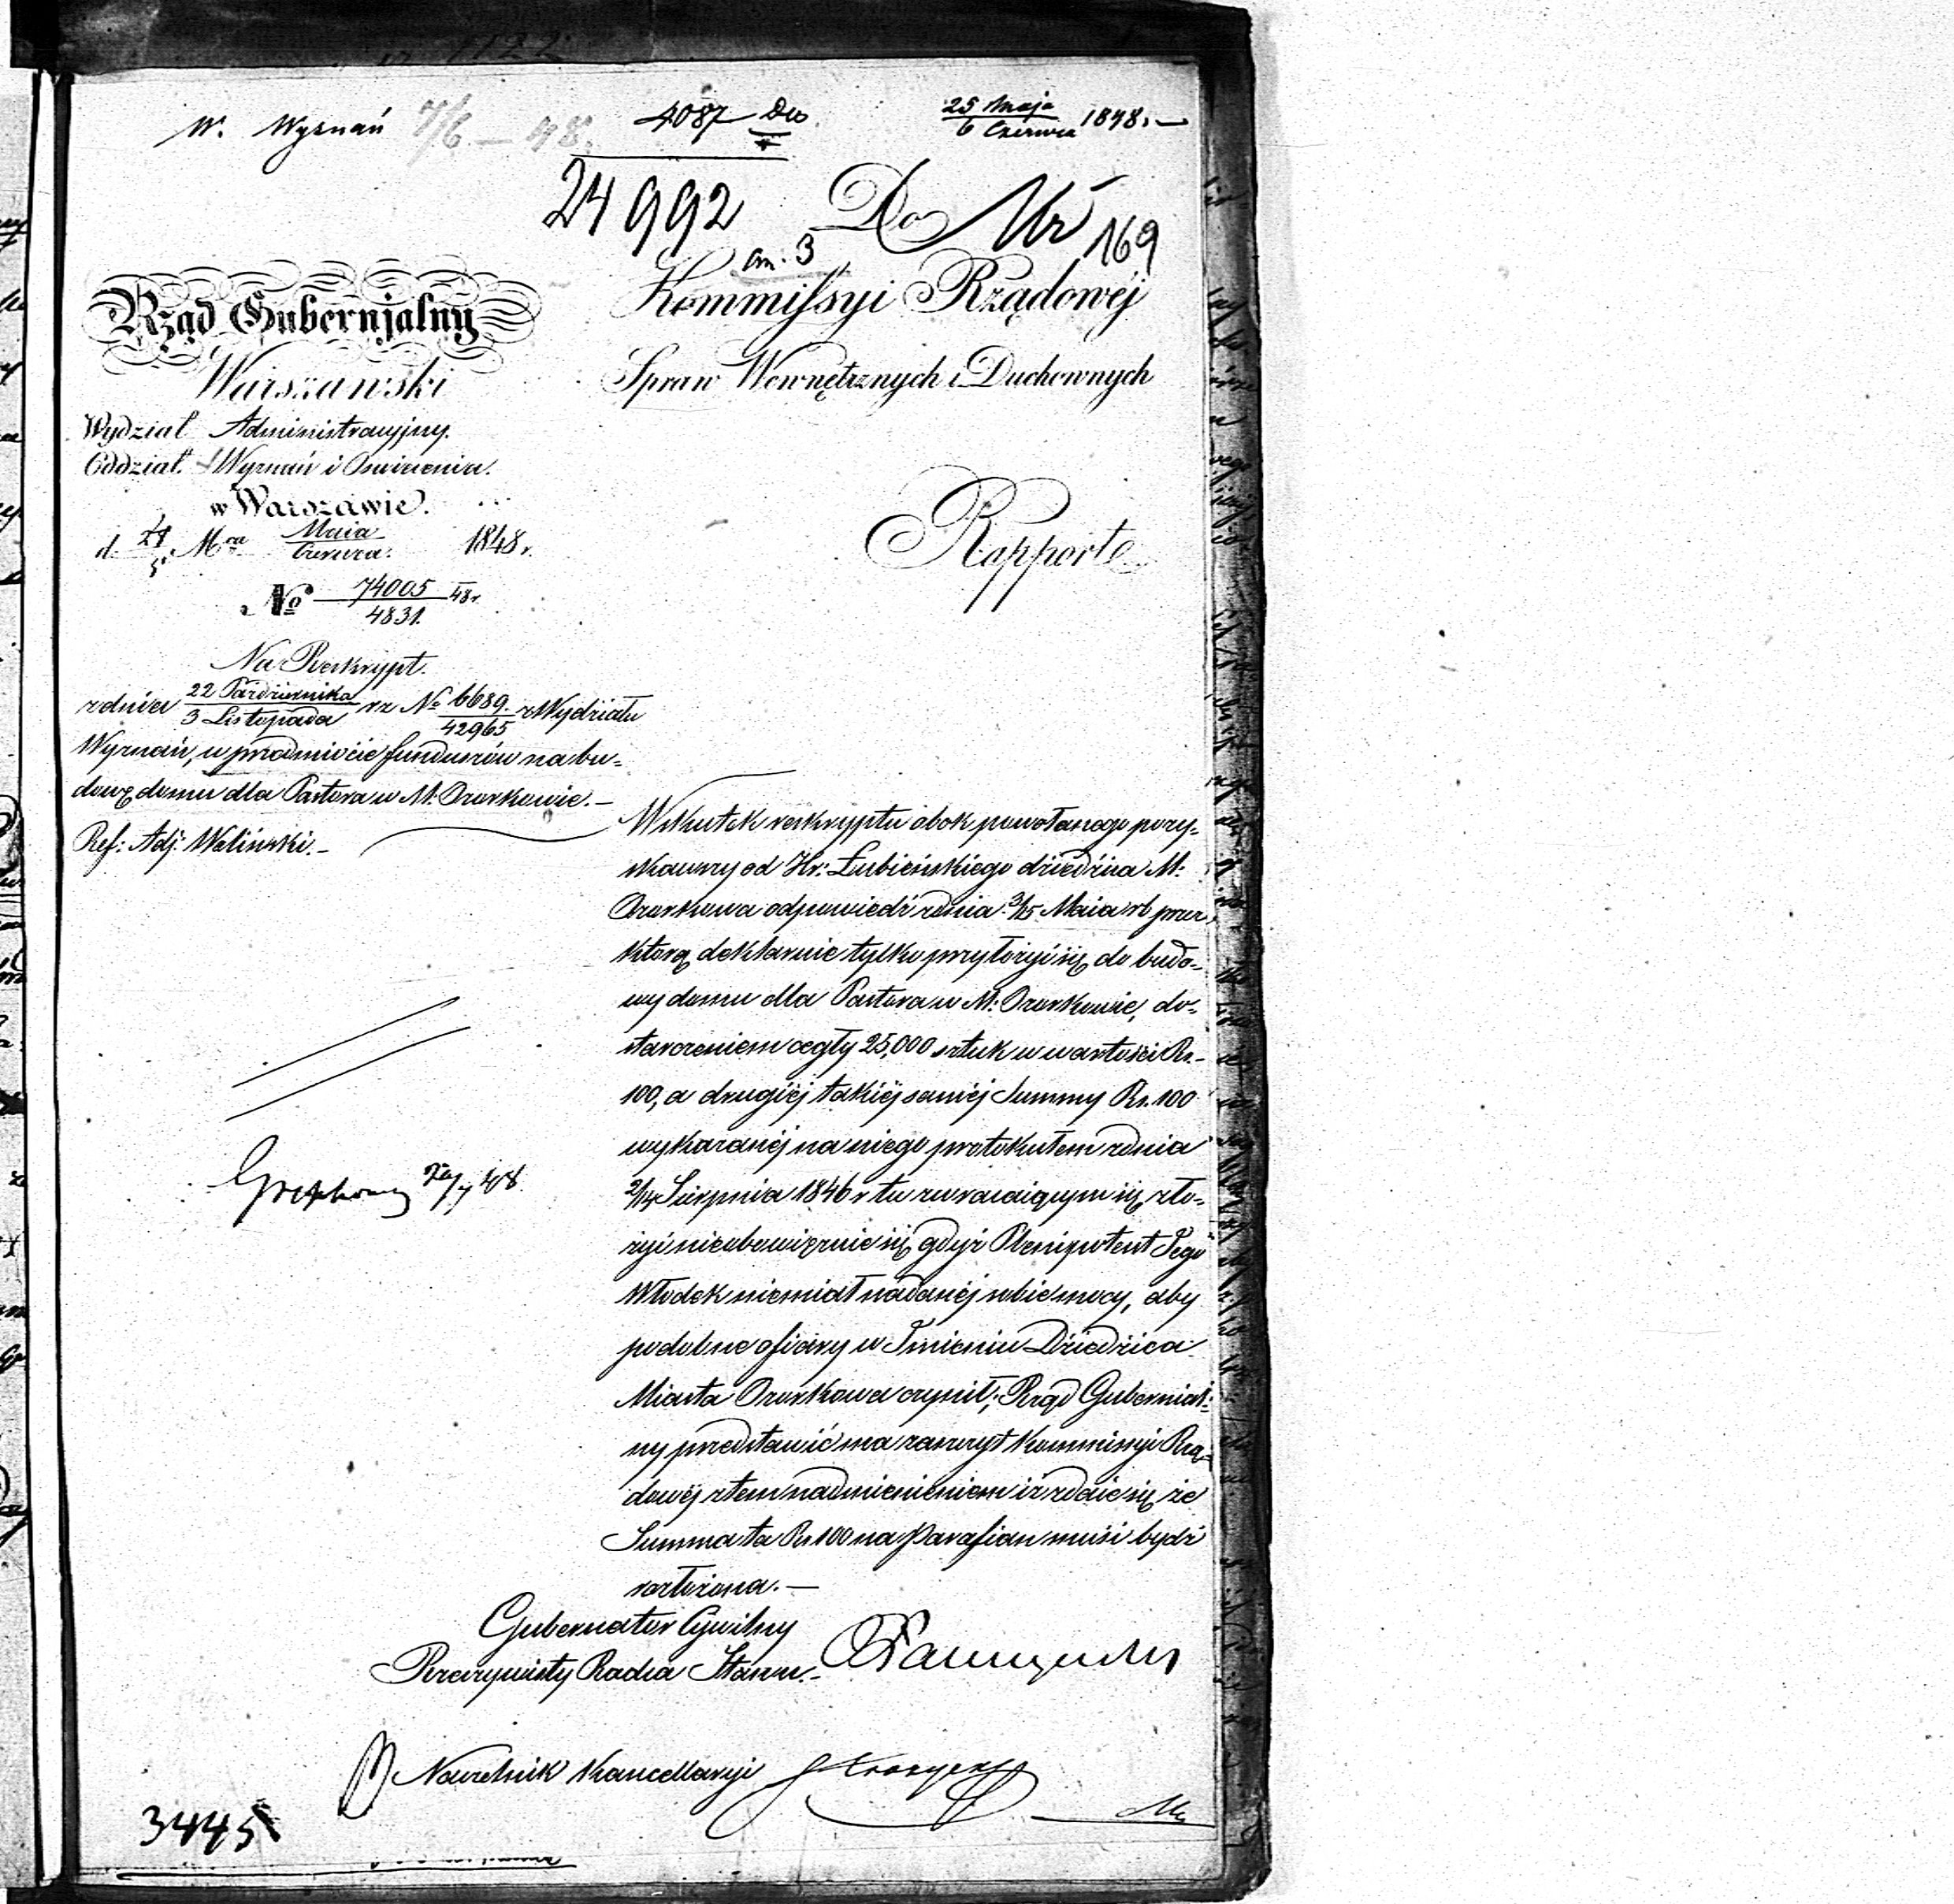 W. Wyznań 7/6 – 48.
4087 Dw
25 Maja
6 Czerwca 1848. —
24992
Do
Nr 169
an. 3
Kommissyi Rządowéj
Spraw Wewnętrznych i Duchownych
Rząd Gubernjalny
Warszawski
Wydział Administracyjny.
Oddział Wyznań i Oswiecenia.
w Warszawie.
d. 24/5 Mca Maia/Czerwca 1848 r.
No 74005/4831. 48r
Rapport
Na Reskrypt.
z dnia 22 Październnika/3 Listopada r z No 6689./42965 z Wydziału
Wyznań, w przedmiocie funduszów na bu=
dowę domu dla Pastora w M. Ozorkowie. —
Ref: Adj: Waliński. —
Wskutek reskryptu obok powołanego pozy=
skawszy od Hr: Łubieńskiego dziedzica M:
Ozorkowa odpowiedź z dnia 3/15 Maia rb przez
którą deklaruie tylko przyłożyć się do budo=
wy domu dla Pastora w M: Ozorkowie, do=
starczeniem cegły 25,000 sztuk w wartości Rs.
100, a drugiéj takiéj saméj Summy Rs. 100
wykazanéj na niego protokułem z dnia
2/14 Sierpnia 1846 r tu zwracaiącym się zło=
żyć nieobowięzuie się gdyż Plenipotent Jego
Włodek niemiał nadanéj sobie mocy, aby
podobne ofiary w Imieniu Dziedzica
Miasta Ozorkowa czynił; Rząd Gubernial=
ny przedstawić ma zaszczyt Kommissyi Rzą=
dowéj z tem nadmienieniem iż zdaie się że
Summa ta Rs 100 na Parafian musi bydź
rozłożona. —
Gubernator Cywilny
Rzeczywisty Radca Stanu. —
Naczelnik Kancellaryi
3445